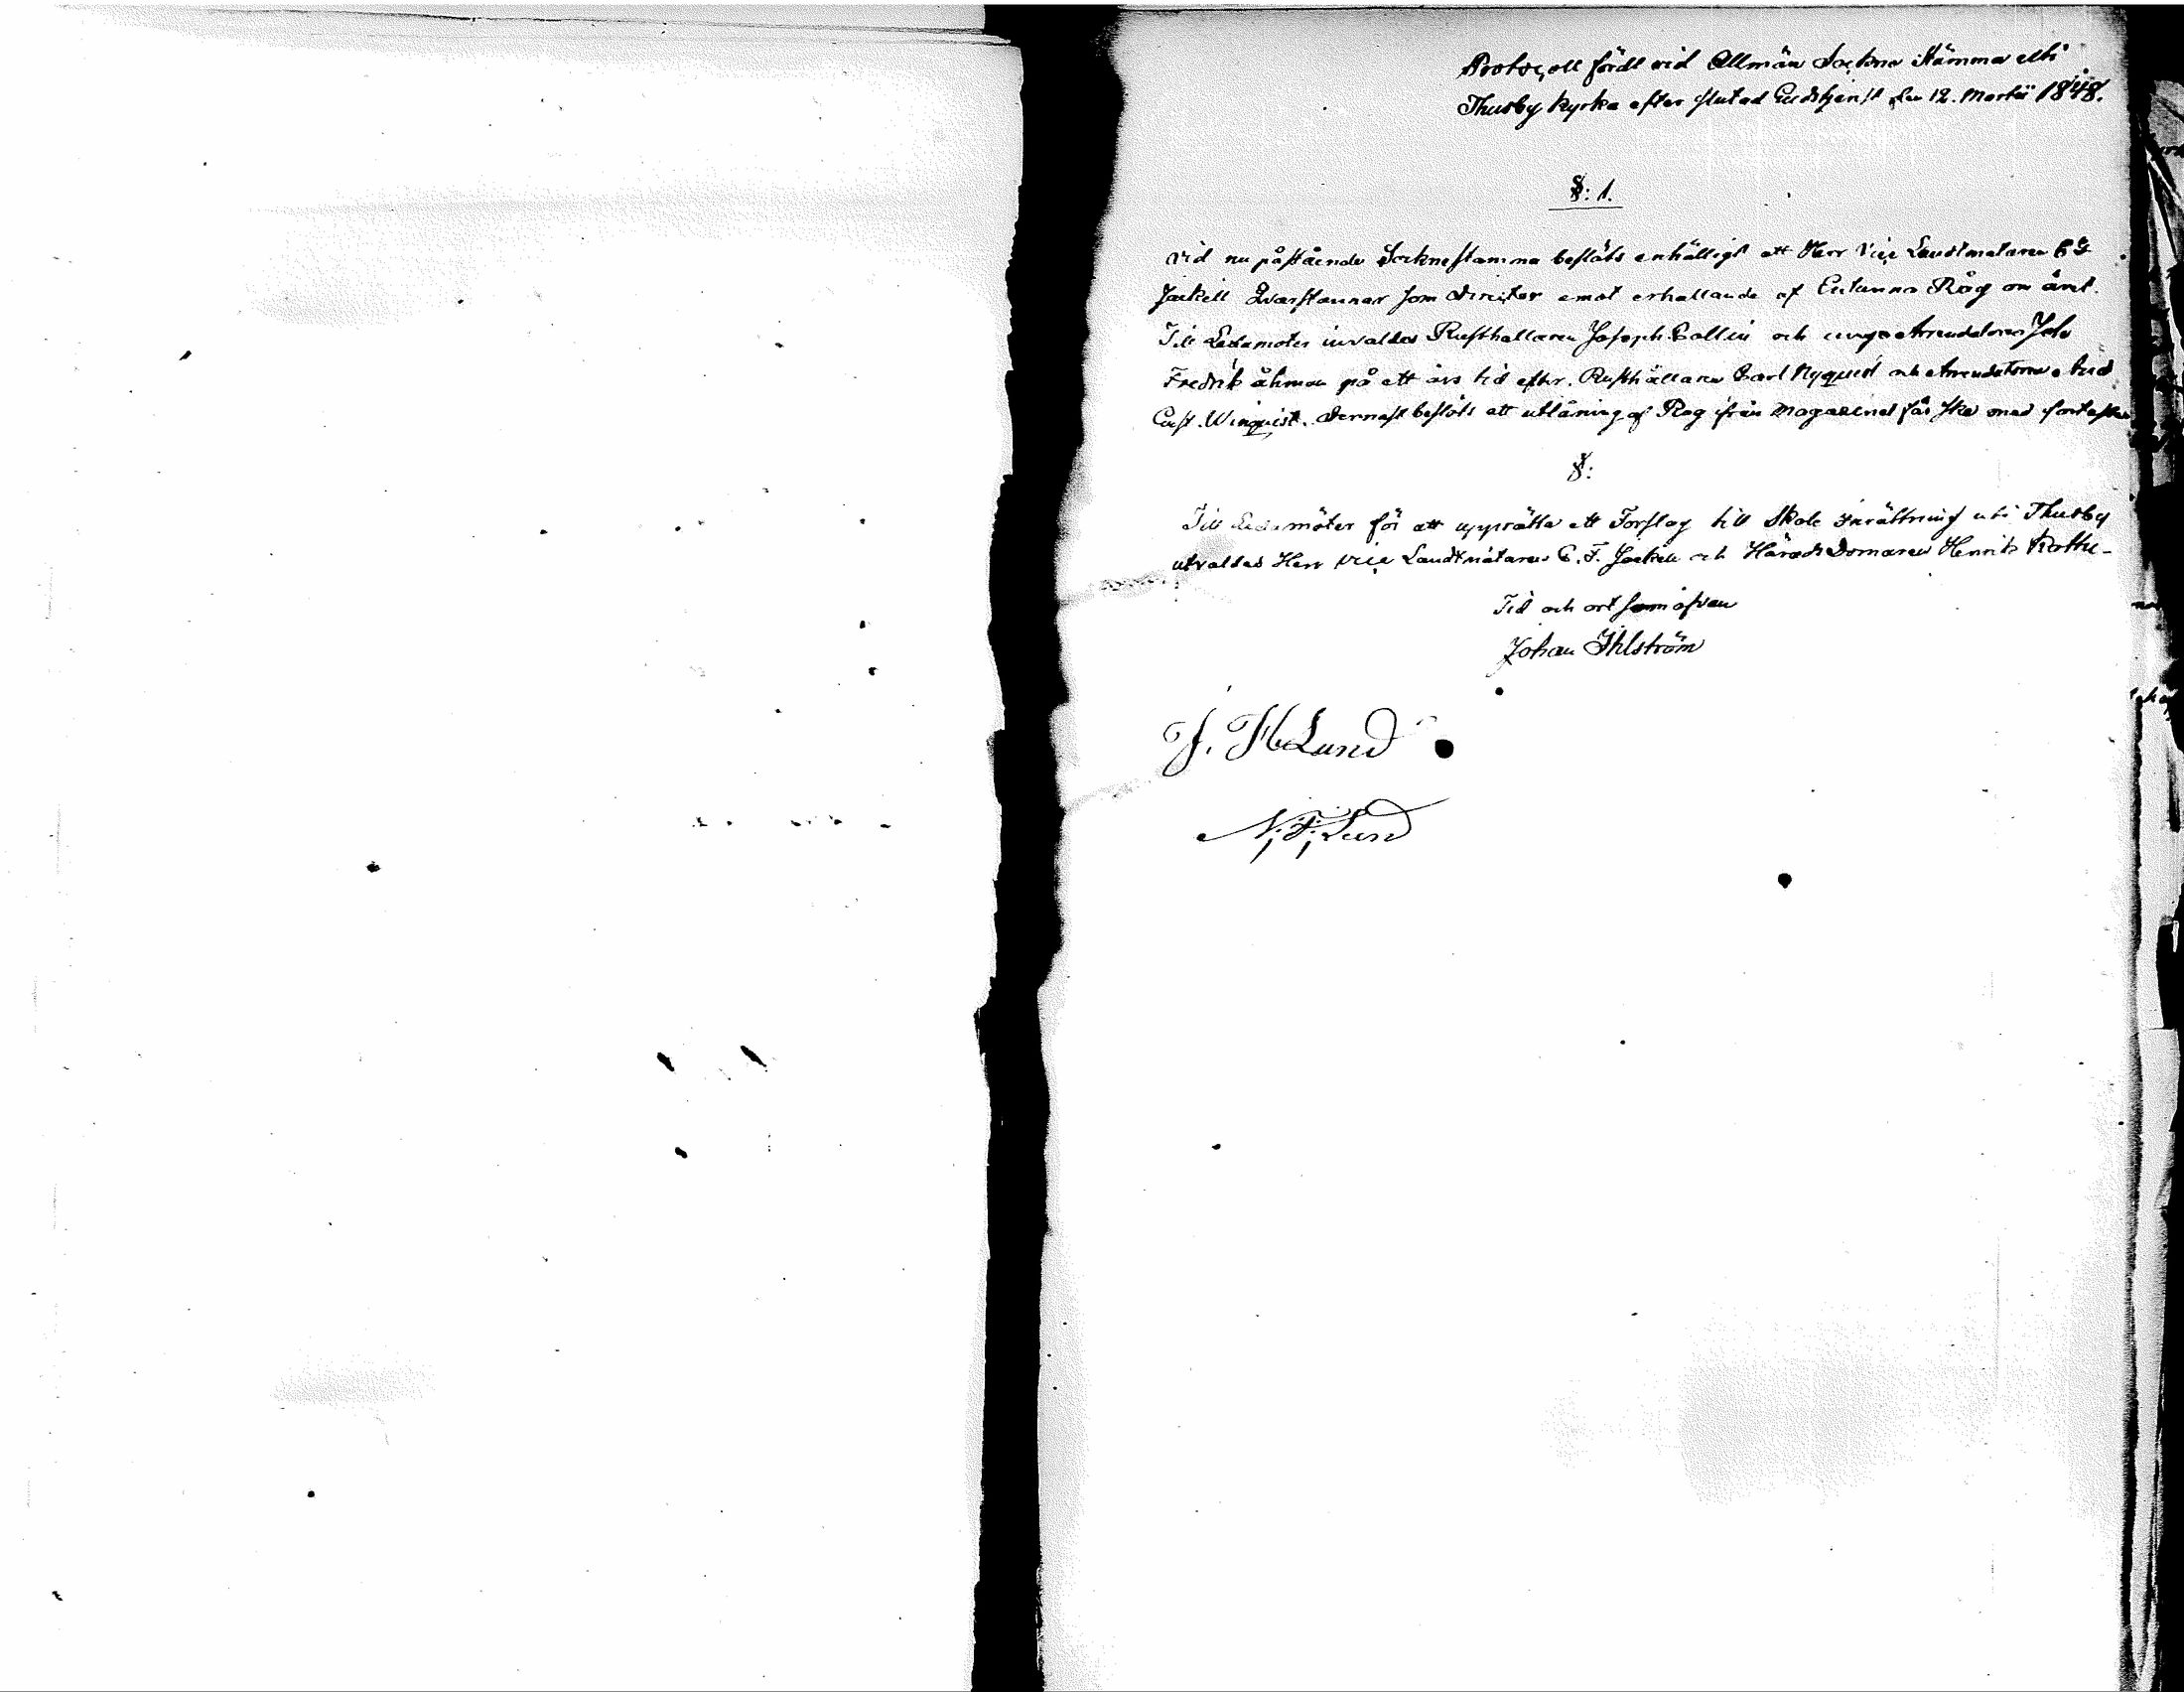 Protocoll fördt vid Allmän Sockne Stämma uti
Thusby kyrka efter slutad Gudstjenst den 12. Martii 1848.
§: 1.
Vid nu påstående Socknestamma beslöts enhälligt att Herr Vice Landtmataren C F
Jackell qvarstannar som Director emot erhallande af En tunna Råg om året.
Till Ledamoter invaldes Rusthallaren Joseph Collin och unga Arrendatoren Joh
Fredrik åhman på ett års tid efter Rusthållaren Carl Nyquist och Arrendatorn
Gust. Winquist. Dernast beslöts att utlåning af Rag från Magasinet får ske med
§:
Till Ledamöter för att upprätta ett Forslag till Skole inrättning uti Thusby
utvaldes Herr Vice Landtmätaren C. F. Jackell och Härads Domaren Henrik
Tid och ort som ofvan
Johan Ihlström
J. H. Lund
N. F. Lund